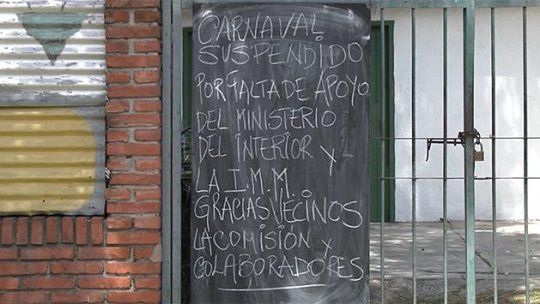 CARNAVAL
SUSPENDIDO
POR FALTA DE APOYO
DEL MINISTERIO
DEL INTERIOR Y
LA I.M.M.
GRACIAS VECINOS
LA COMISIÓN Y
COLABORADORES